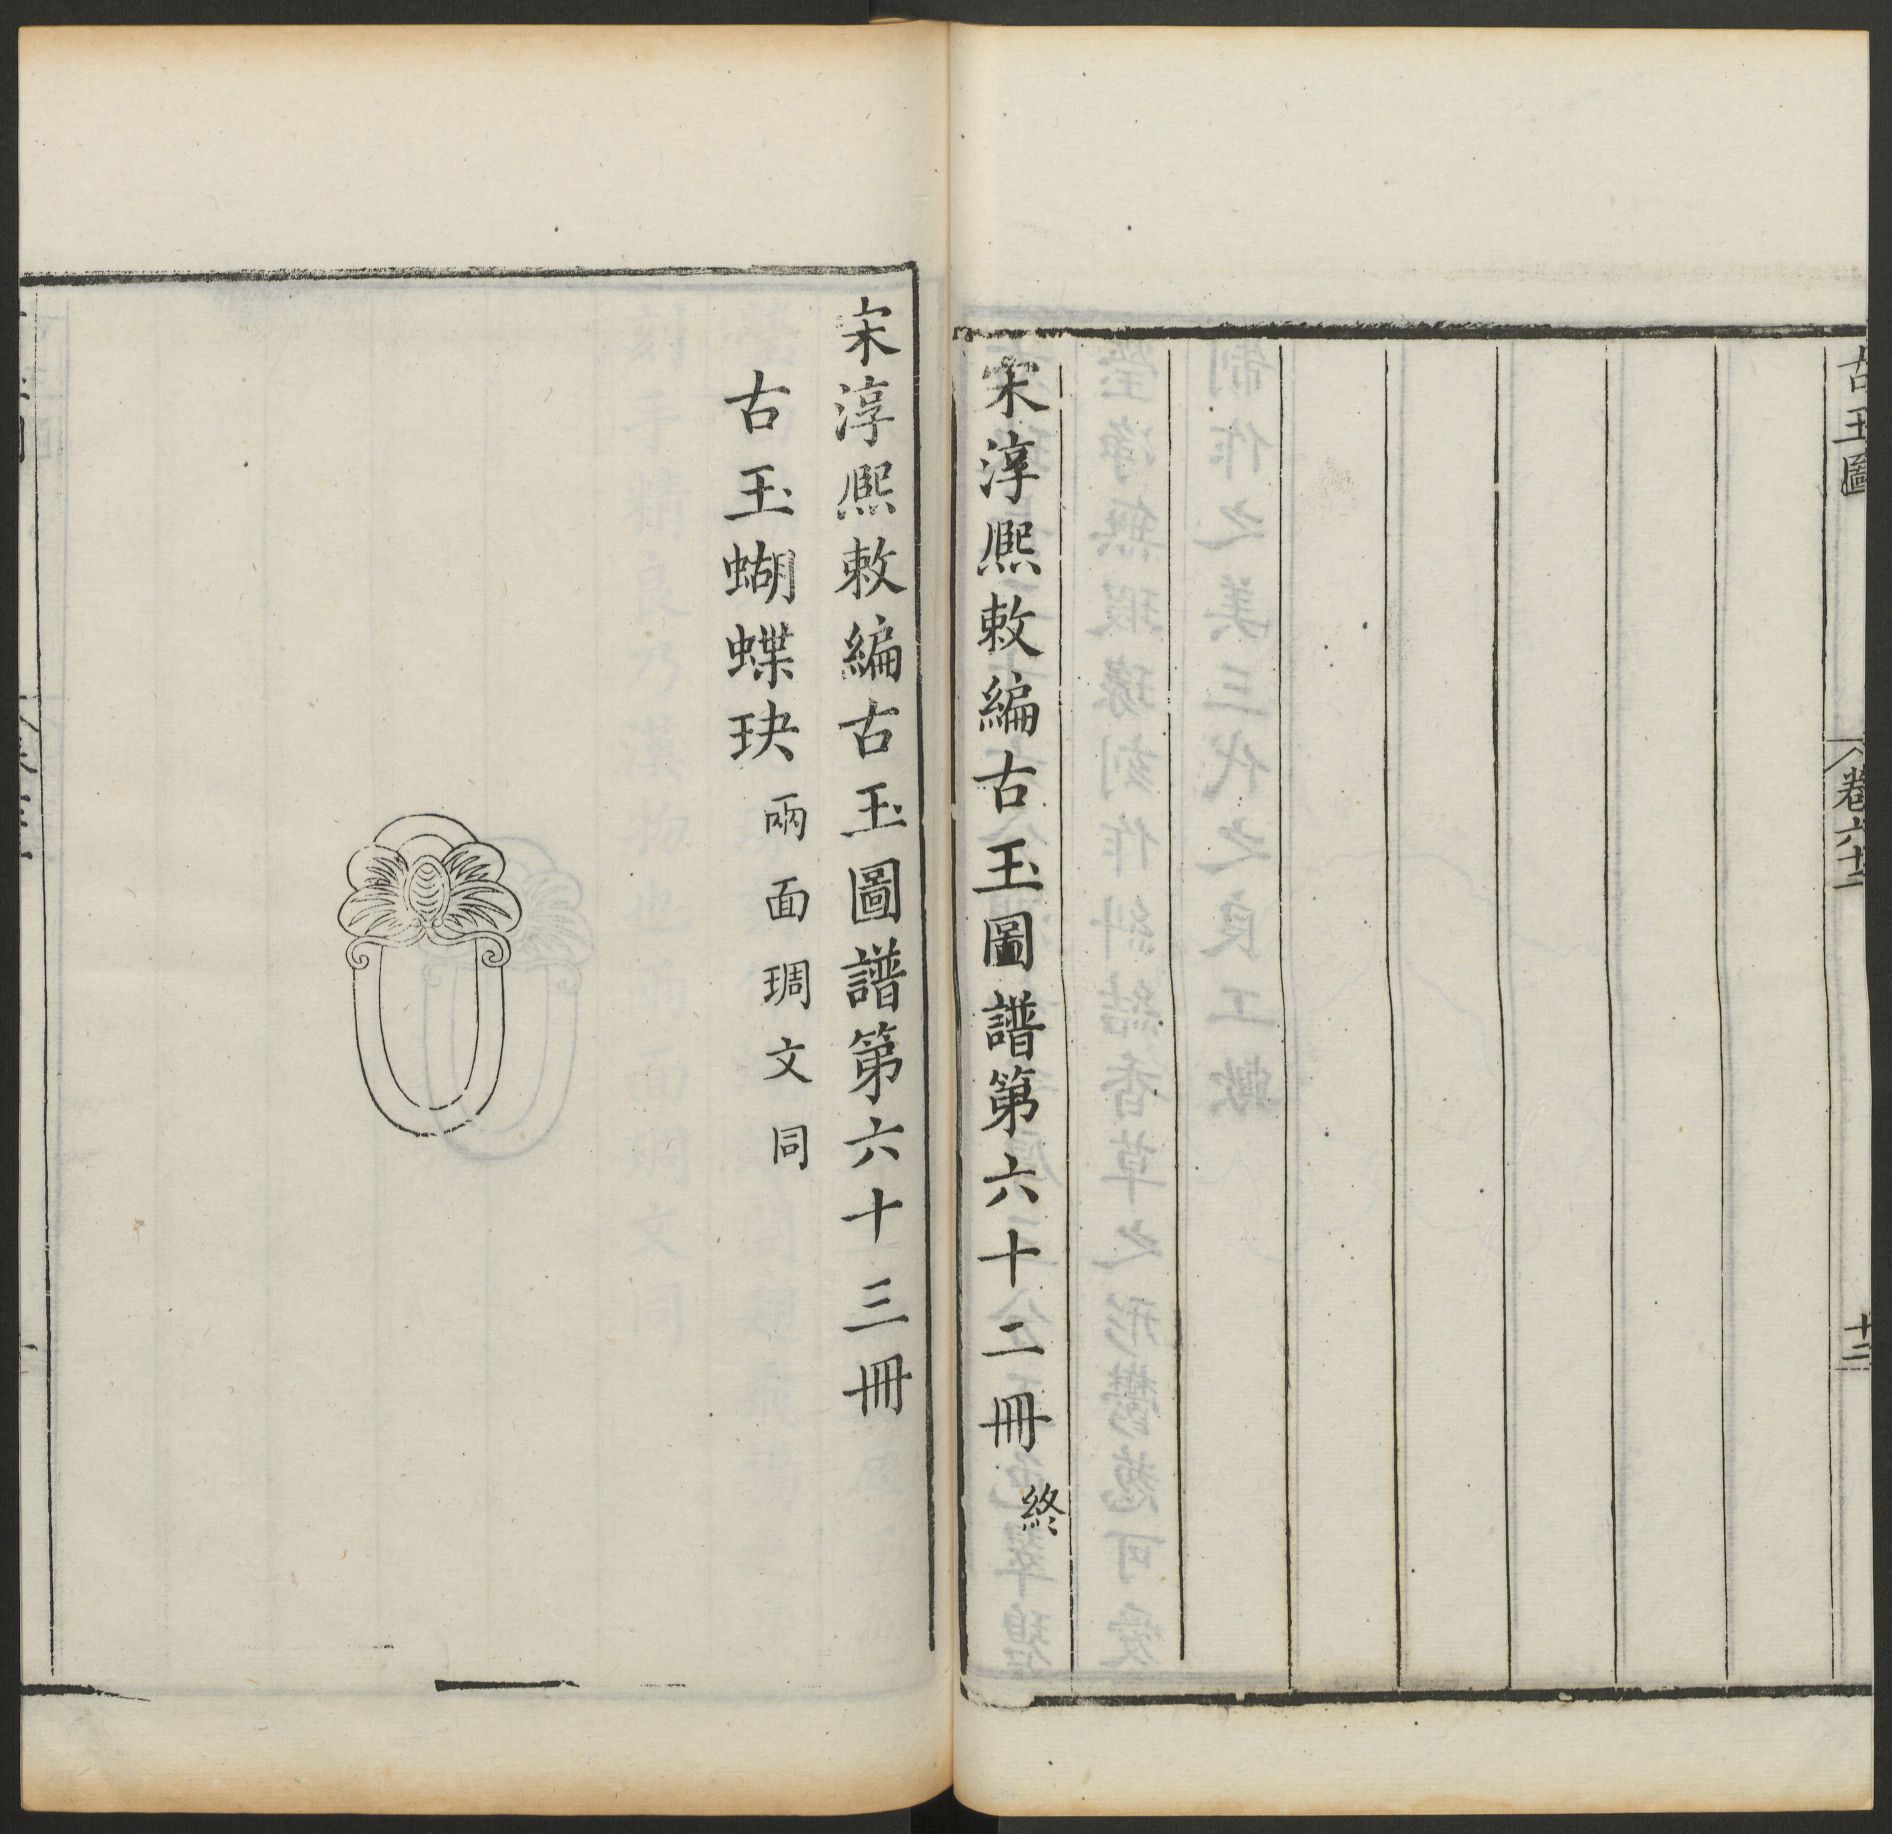 古玉圖
卷六十二
十二
宋淳熙敕編古玉圖譜第六十二冊 終
宋淳熙敕編古玉圖譜第六十三冊
古玉蝴蝶玦 兩面琱文同